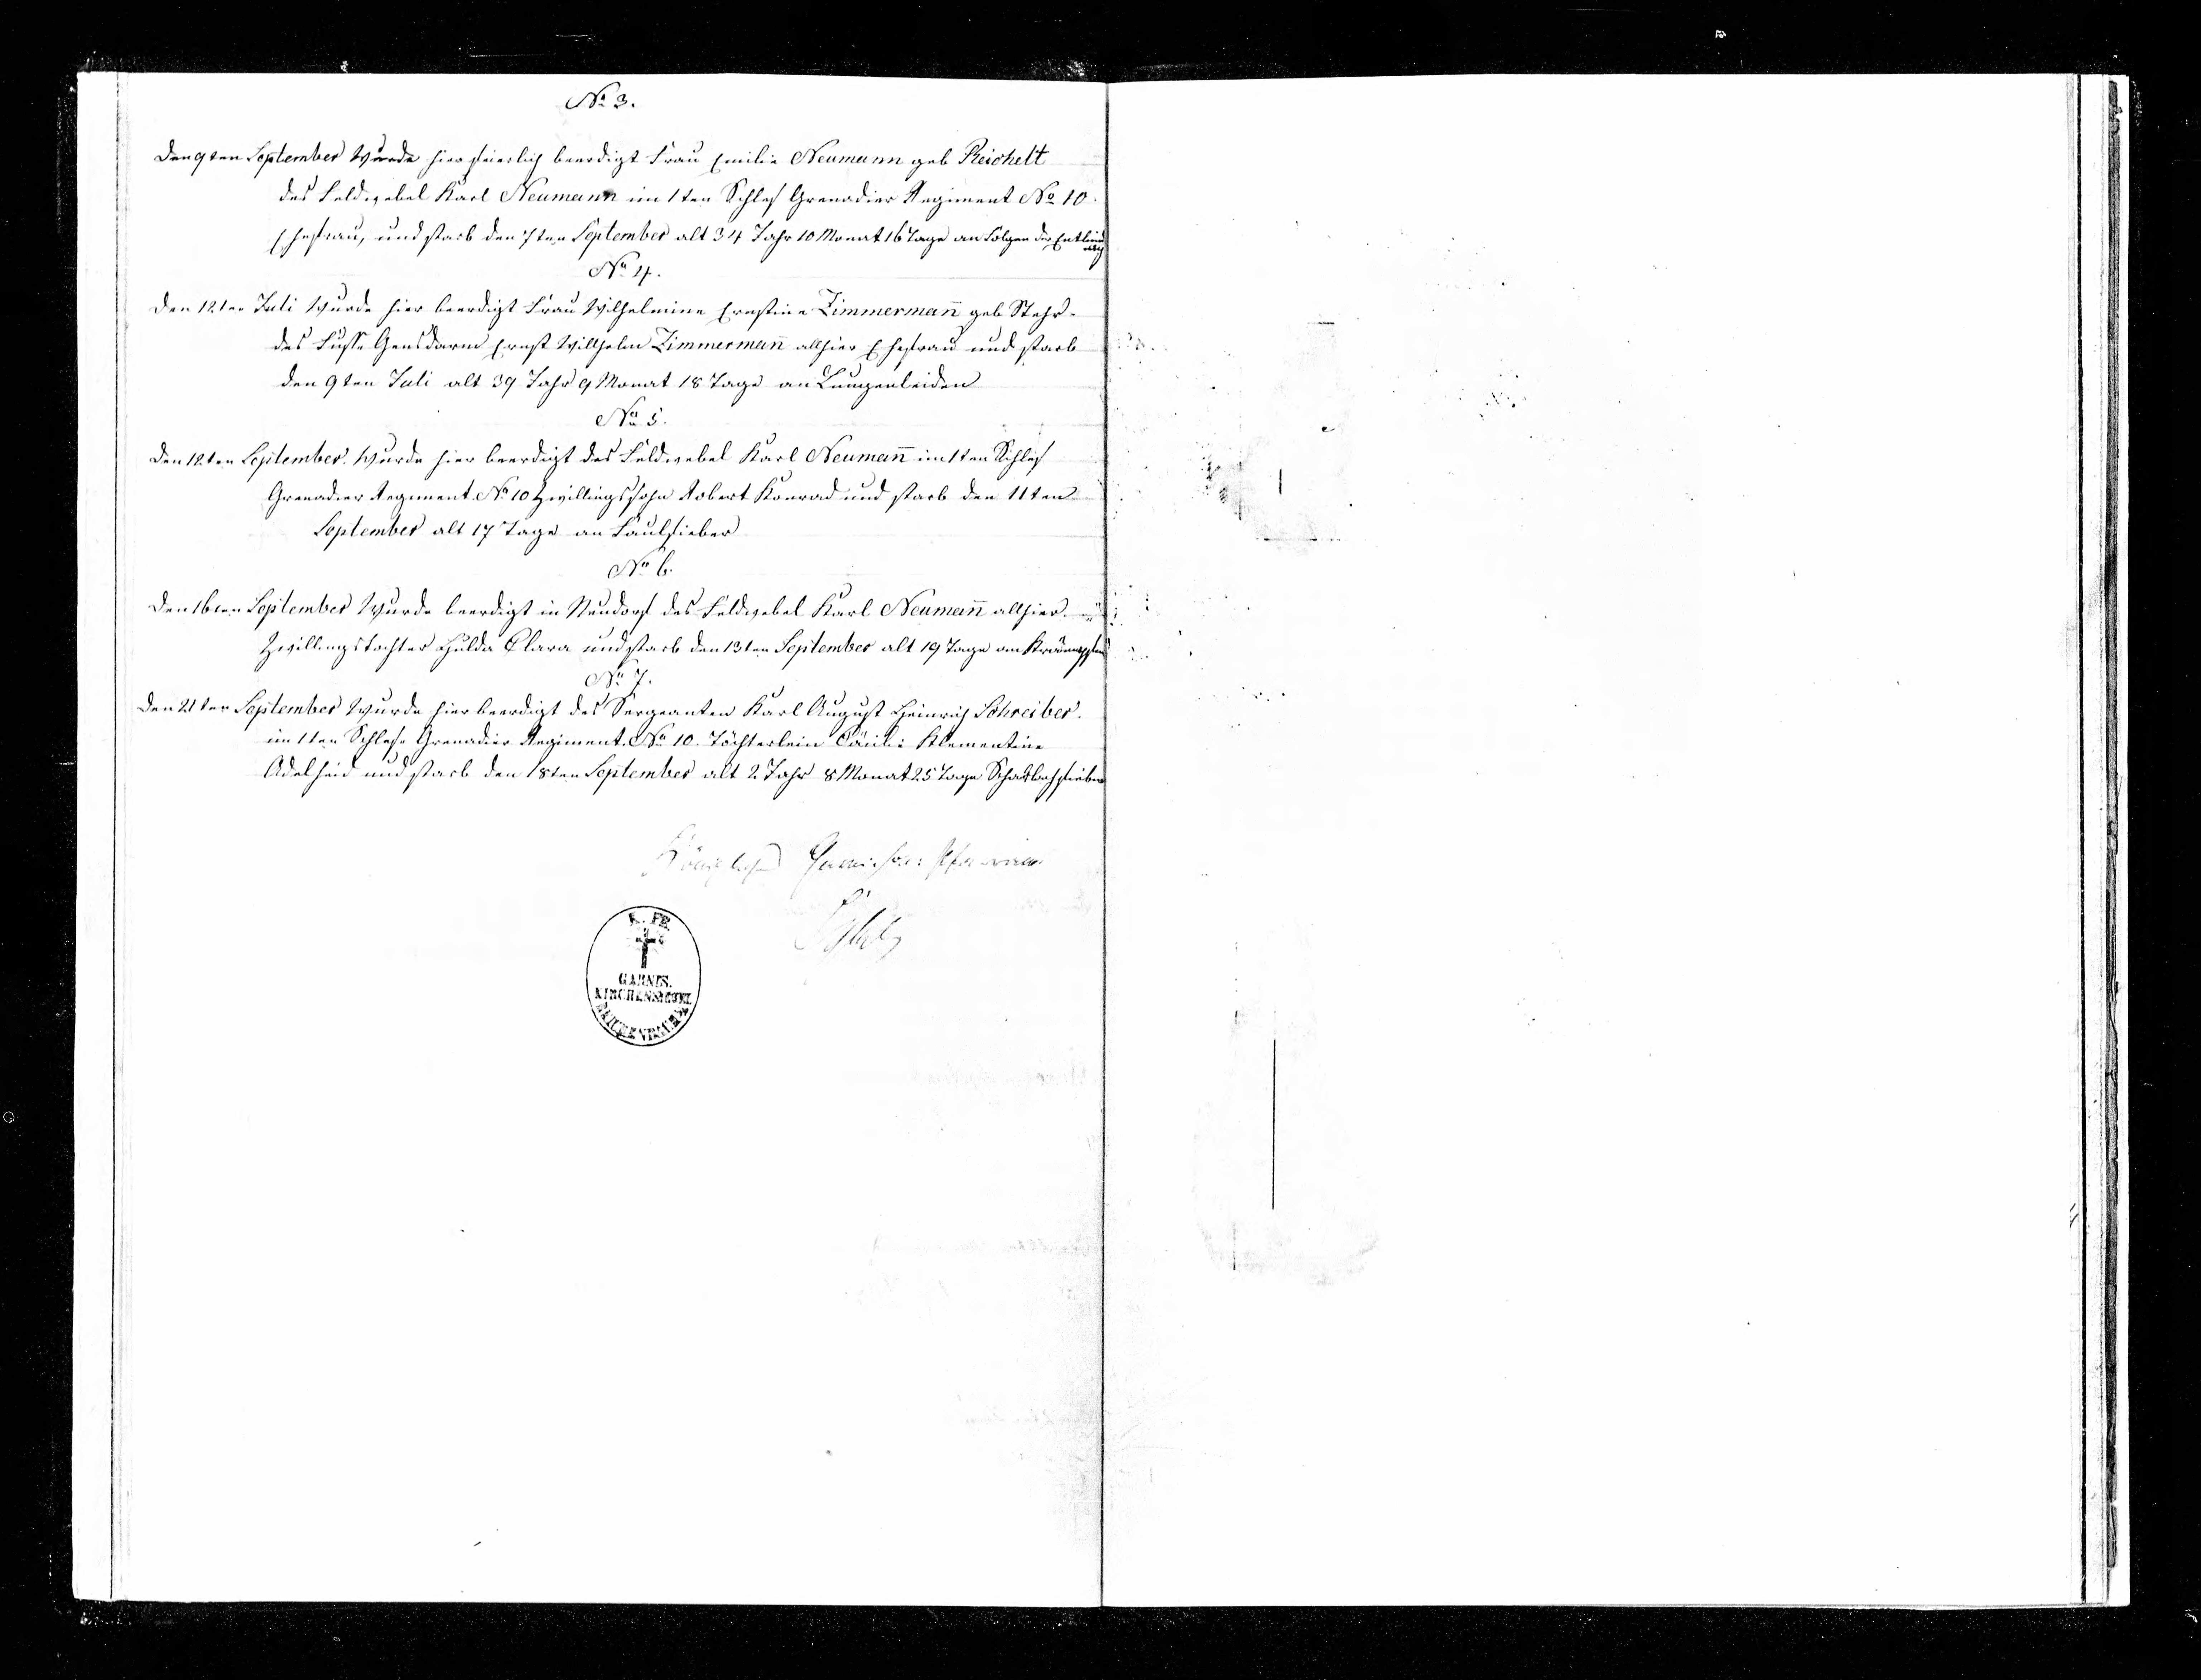 No 3.
Den 9ten September wurde hier feierlich beerdigt Frau Emilie Neumann geb Reichelt
des Feldwebel Karl Neumann im 1ten Schles Grenadier Regiment No 10.
Ehefrau, und starb den 7ten September alt 34 Jahr 10 Monat 16 Tage an Folgen der Entbindung
No 4.
Den 12ten Juli wurde hier beerdigt Frau Wilhelmine Ernestine Zimmermañ geb Stehr.
des Fusse Gensdarm Ernst Willhelm Zimmermañ allhier Ehefrau und starb
den 9ten Juli alt 39 Jahr 9 Monat 18 Tage an Lungenleiden
No 5.
Den 12ten September wurde hier beerdigt des Feldwebel Karl Neumañ im 1ten Schles
Grenadier Regiment No 10 Zwillingssohn Robert Konrad und starb den 11ten
September alt 17 Tage an Faulfieber
No 6.
Den 16ten September wurde beerdigt in Neudorf des Feldwebel Karl Neumañ allhier
Zwillingstochter Hulda Clara und starb den 13ten September alt 19 Tage an Krämpfen
No 7.
Den 21ten September wurde hier beerdigt des Sergeanten Karl August Heinrich Schreiber.
im 1ten Schles. Grenadier Regiment. No 10. Töchterlein Cäcilie Klementine
Adelheid und starb den 18ten September alt 2 Jahr 8 Monat 25 Tage Scharlachfieber
Königliches Garnison Pfarramt
K. PR.
GARNIS.
KIRCHENSIEGEL